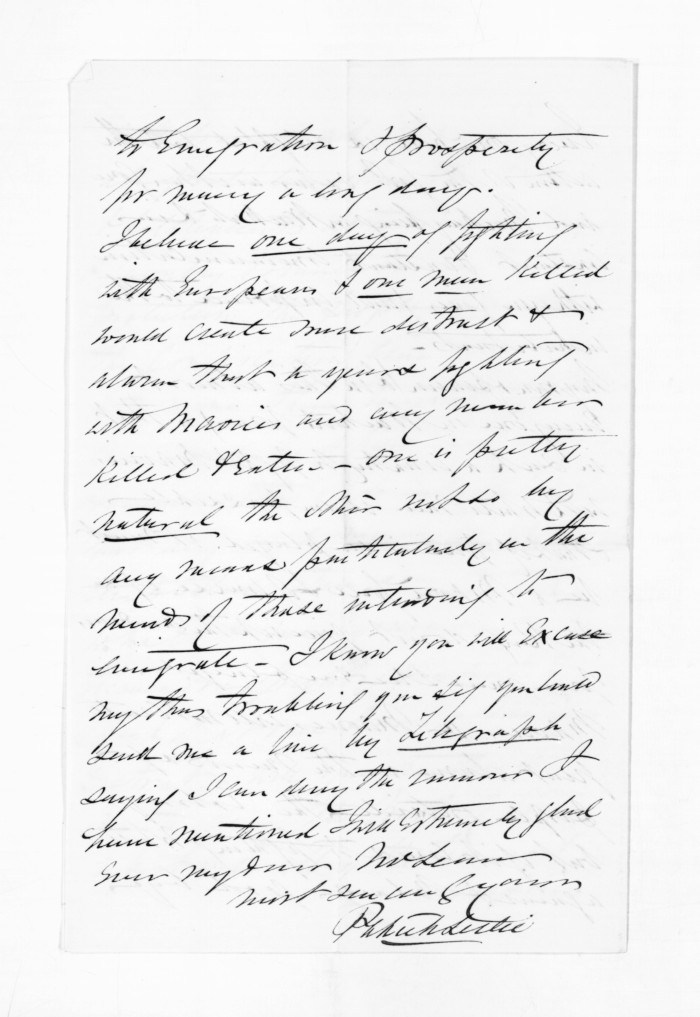 to Emigration & Prosperity
for many a long day.
I believe one day of fighting
with Europeans & one man Killed
would create more distrust &
alarm that a years fighting
with Maories and any number
Killed & Eaten - one is pretty
natural the other not so by
any means particularly in the
minds of those intending to
emigrate - I know you will Excuse
my thus troubling you & if you would
send me a line by Telegraph
saying I can deny the rumour I
have mentioned I will Extremely glad
Ever my dear McLean
most sincerely yours
Patrick Leslie